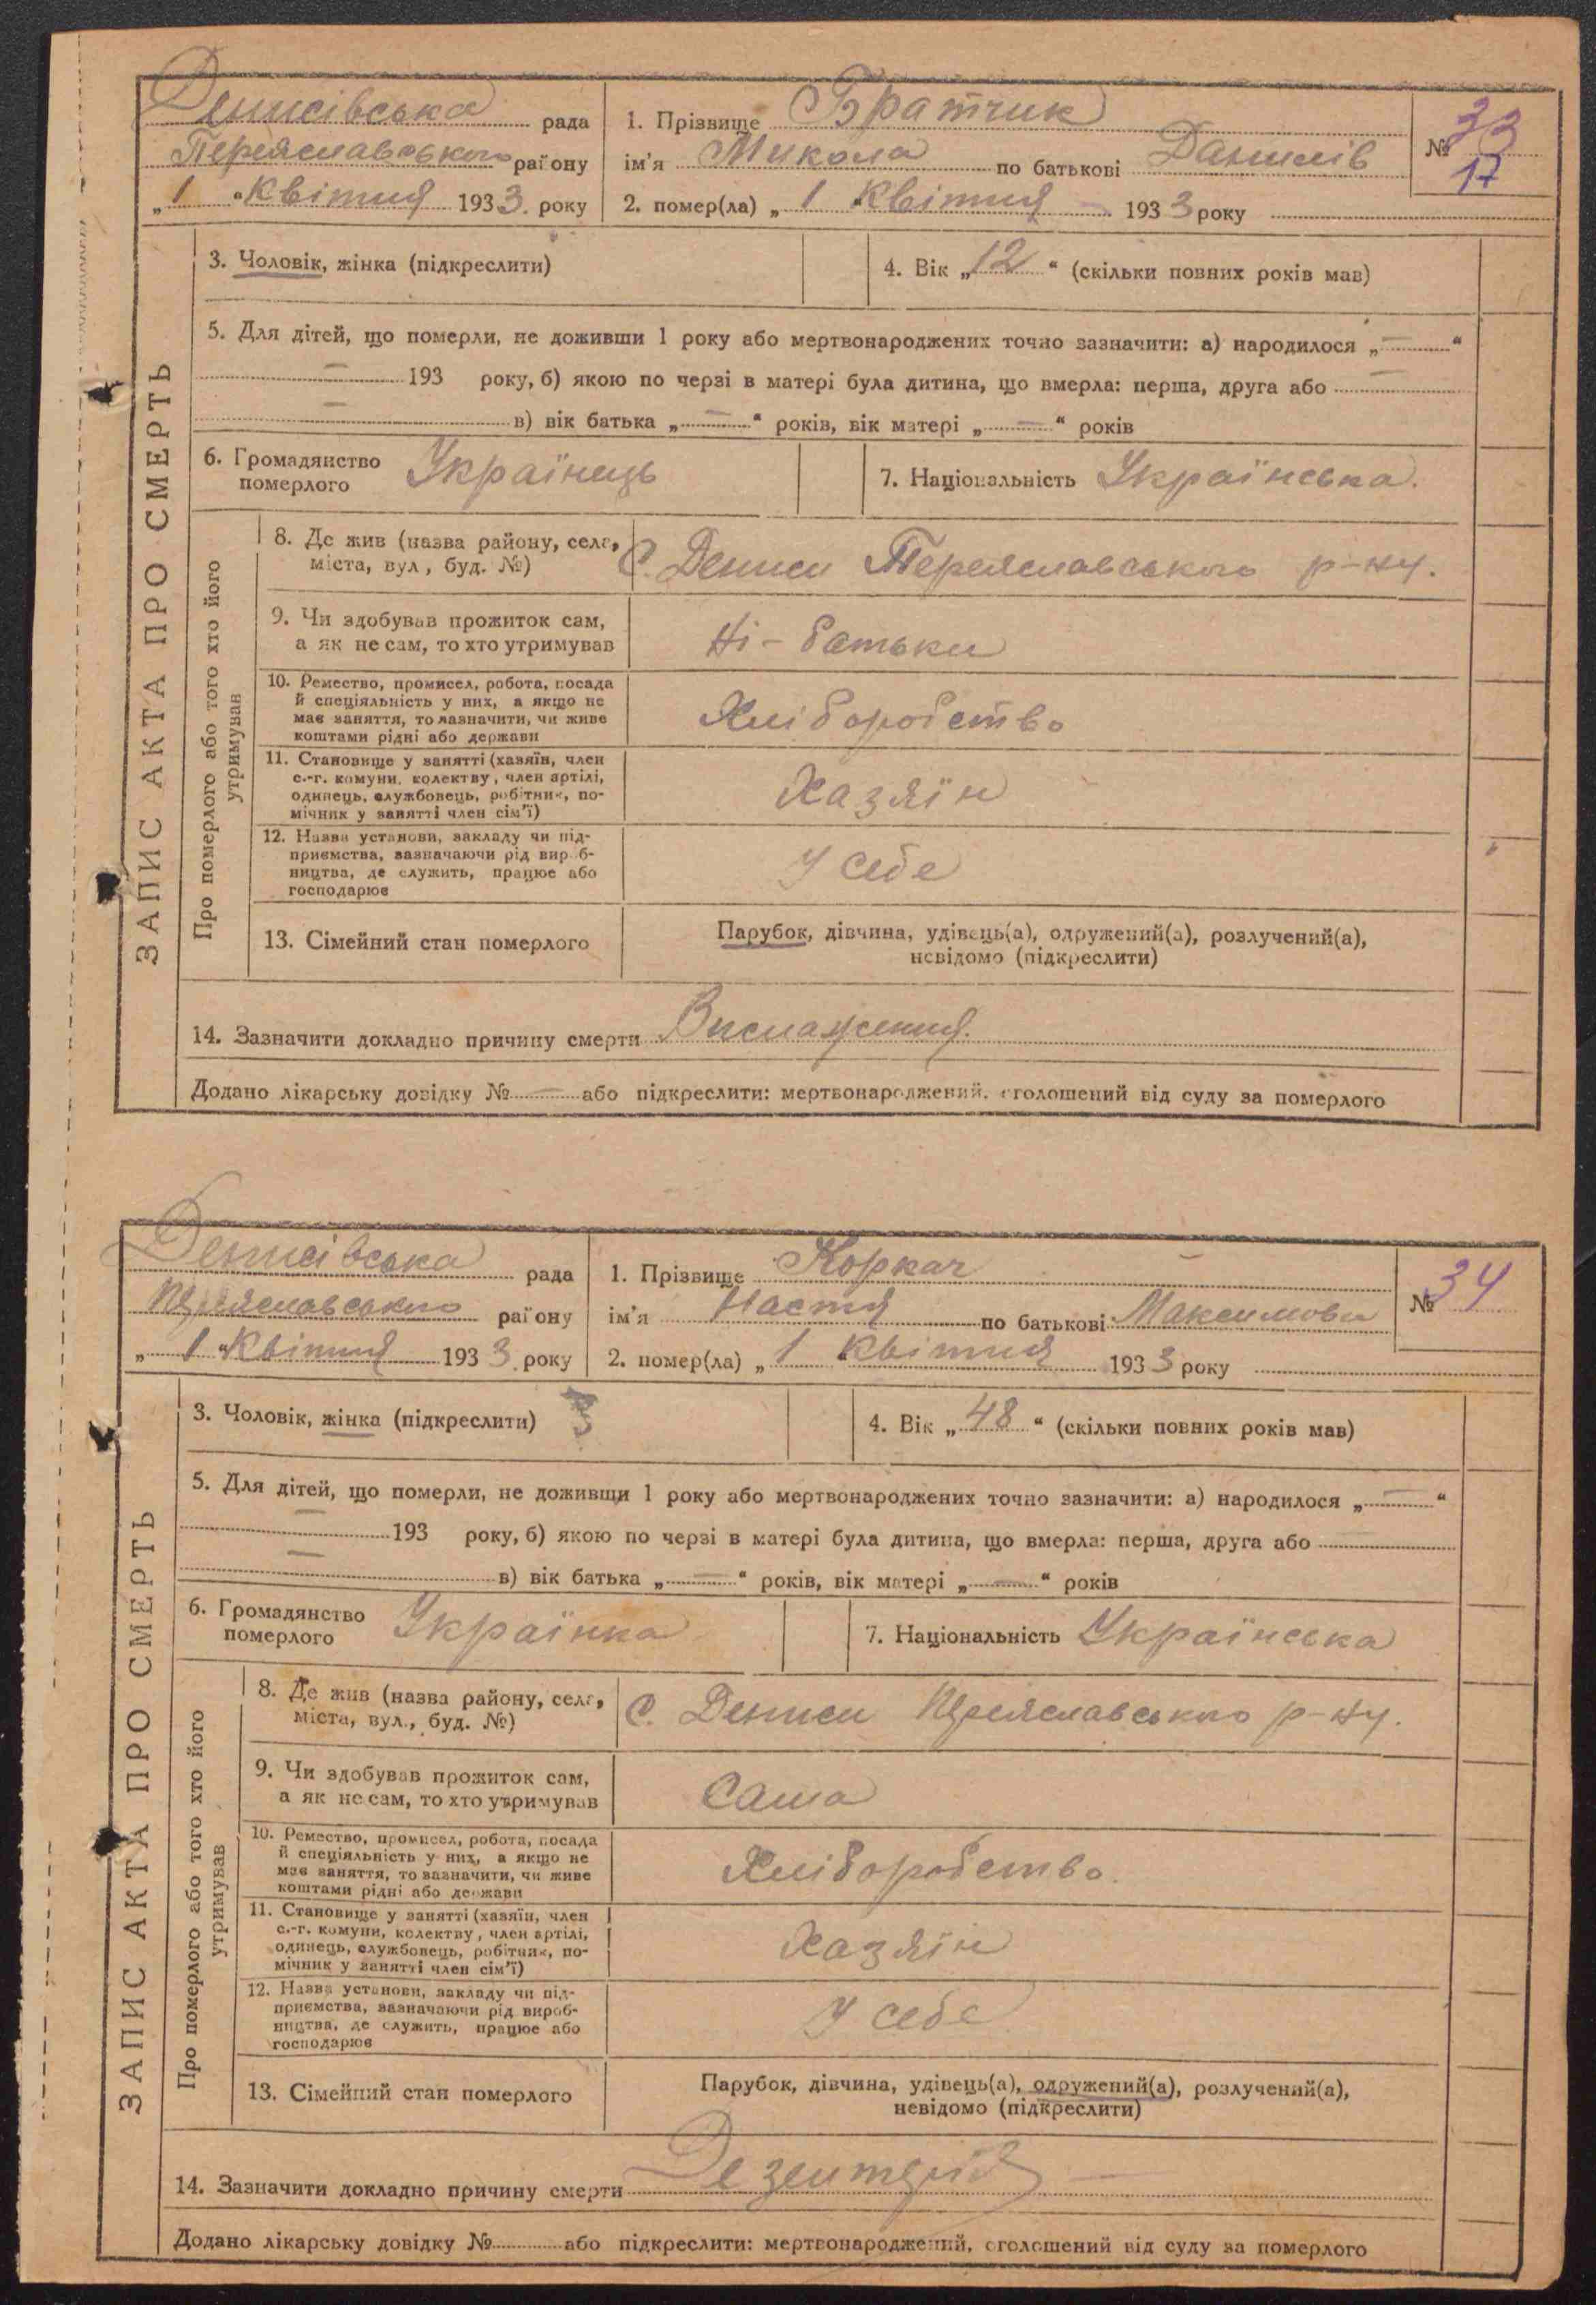 Денисівська рада
Переяславського району
„1“ Квітня 1933 року
1. Прізвище Братчик
ім'я Микола по батькові Данилів
2. помер(ла) „1 Квітня 1933 року
№ 33
17
ЗАПИС АКТА ПРО СМЕРТЬ
3. Чоловік, жінка (підкреслити)
4. Вік „12“ (скільки повних років мав)
5. Для дітей, що померли, не доживши 1 року або мертвонароджених точно зазначити: а) народилося „—“
— 193 року, б) якою по черзі в матері була дитина, що вмерла: перша, друга або —
— в) вік батька „—“ років, вік матері „—“ років
6. Громадянство
померлого
Українець
7. Національність Українська.
Про померлого або того хто його
утримував
8. Де жив (назва району, села,
міста, вул., буд. №)
С. Дениси Переяславського р-ну.
9. Чи здобував прожиток сам,
а як не сам, то хто утримував
Ні - батьки
10. Ремество, промисел, робота, посада
й спеціяльність у них, а якщо не
має заняття, то зазначити, чи живе
коштами рідні або держави
Хліборобство
11. Становище у занятті (хазяїн, член
с.-г. комуни, колектву, член артілі,
одинець, службовець, робітник, по-
мічник у занятті член сім'ї)
Хазяїн
12. Назва установи, закладу чи під-
приємства, зазначаючи рід вироб-
ництва, де служить, працює або
господарює
У себе
13. Сімейний стан померлого
Парубок, дівчина, удівець(а), одружений(а), розлучений(а),
невідомо (підкреслити)
14. Зазначити докладно причину смерти Виснаження.
Додано лікарську довідку № — або підкреслити: мертвонароджений, оголошений від суду за померлого
Денисівська рада
Переяславського району
„1“ Квітня 1933 року
1. Прізвище Коркач —
ім'я Настя по батькові Максимовн
2. помер(ла) „1 Квітня 1933 року
№ 34
ЗАПИС АКТА ПРО СМЕРТЬ
3. Чоловік, жінка (підкреслити) 3
4. Вік „48“ (скільки повних років мав)
5. Для дітей, що померли, не доживши 1 року або мертвонароджених точно зазначити: а) народилося „—“
— 193 року, б) якою по черзі в матері була дитина, що вмерла: перша, друга або
— в) вік батька „—“ років, вік матері „—“ років
6. Громадянство
померлого
Українка
7. Національність Українська
Про померлого або того хто його
утримував
8. Де жив (назва району, села,
міста, вул., буд. №)
С. Дениси Переяславського р-ну.
9. Чи здобував прожиток сам,
а як не сам, то хто утримував
Сама
10. Ремество, промисел, робота, посада
й спеціяльність у них, а якщо не
має заняття, то зазначити, чи живе
коштами рідні або держави
Хліборобство.
11. Становище у занятті (хазяїн, член
с.-г. комуни, колектву, член артілі,
одинець, службовець, робітник, по-
мічник у занятті член сім'ї)
Хазяїн
12. Назва установи, закладу чи під-
приємства, зазначаючи рід вироб-
ництва, де служить, працює або
господарює
У себе
13. Сімейний стан померлого
Парубок, дівчина, удівець(а), одружений(а), розлучений(а),
невідомо (підкреслити)
14. Зазначити докладно причину смерти Дезентерія —
Додано лікарську довідку № або підкреслити: мертвонароджений, оголошений від суду за померлого